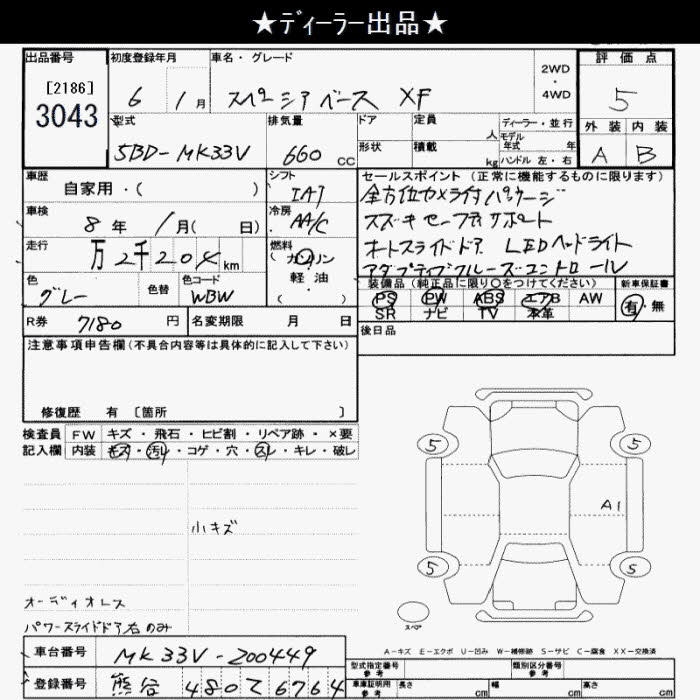 ★ディーラー出品★
出品番号
[2186]
3043
初度登録年月
6 1 月
車名・グレード
スペーシアベース XF
2WD
・
4WD
評価点
5
外装 内装
A B
型式
5BD-MK33V
排気量
660 CC
ドア
形状
定員 人
積載 kg
ディーラー・並行
モデル年式 年式
ハンドル 左・右
車歴
自家用・( )
シフト
IAT
車検
8 年 1 月( 日)
冷房
AA/C
走行
万 2千204 km
燃料
ガソリン
軽・油
( )
色
グレー
色替
色コード
WBW
セールスポイント (正常に機能するものに限ります)
全方位カメラ付パッケージ
スズキセーフティサポート
オートスライドドア LEDヘッドライト
アダプティブクルーズ・コントロール
装備品 (純正品に限り○をつけてください)
PS PW ABS エアB AW
SR ナビ TV 本革
新車保証書
有・無
R券 7180 円
名変期限 月 日
後日品
注意事項申告欄 (不具合内容等は具体的に記入して下さい)
修復歴 有 [箇所 ]
検査員記入欄
FW キズ・飛石・ヒビ割・リペア跡・×要
内装 キズ・汚レ・コゲ・穴・スレ・キレ・破レ
小キズ
オーディオレス
パワースライドドア右のみ
5 5
A1
5 5
スペア
A-キズ E-エクボ U-凹み W-補修跡 S-サビ C-腐食 XX-交換済
車台番号 MK33V-200449
登録番号 熊谷 480 て 6764
型式指定番号 参考
類別区分番号 参考
車庫証明用 参考 長さ cm 幅 cm 高さ cm